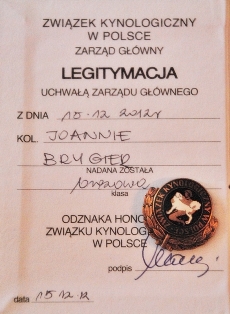 ZWIĄZEK KYNOLOGICZNY
W POLSCE
ZARZĄD GŁÓWNY
LEGITYMACJA
UCHWAŁĄ ZARZĄDU GŁÓWNEGO
Z DNIA 15.12.2012r
KOL. JOANNIE
BRYGIER
NADANA ZOSTAŁA
brązowa
klasa
ODZNAKA HONO
ZWIĄZKU KYNOLOG
W POLSCE
podpis
data 15.12.12